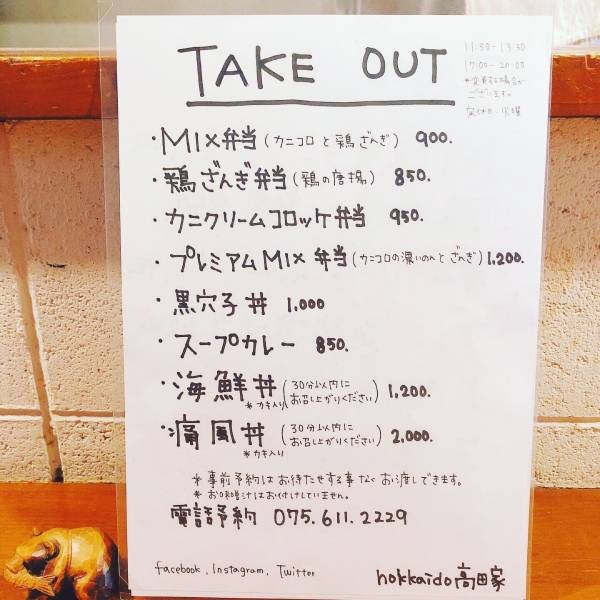 TAKE OUT
11:30-13:30
17:00-20:00
*変更する場合が
ございます。
定休日:火曜
・MIX弁当(カニコロと鶏ざんぎ) 900.
・鶏ざんぎ弁当(鶏の唐揚) 850.
・カニクリームコロッケ弁当 950.
・プレミアムMIX弁当(カニコロの濃いのんとざんぎ) 1,200.
・黒穴子丼 1,000
・スープカレー 850.
・海鮮丼(30分以内にお召し上がりください) 1,200.
*カキ入り
・痛風丼(30分以内にお召し上がりください) 2,000.
*カキ入り
*事前予約はお待たせする事なくお渡しできます。
*お味噌汁はお付けしていません。
電話予約 075.611.2229
facebook, Instagram, Twitter
hokkaido高田家